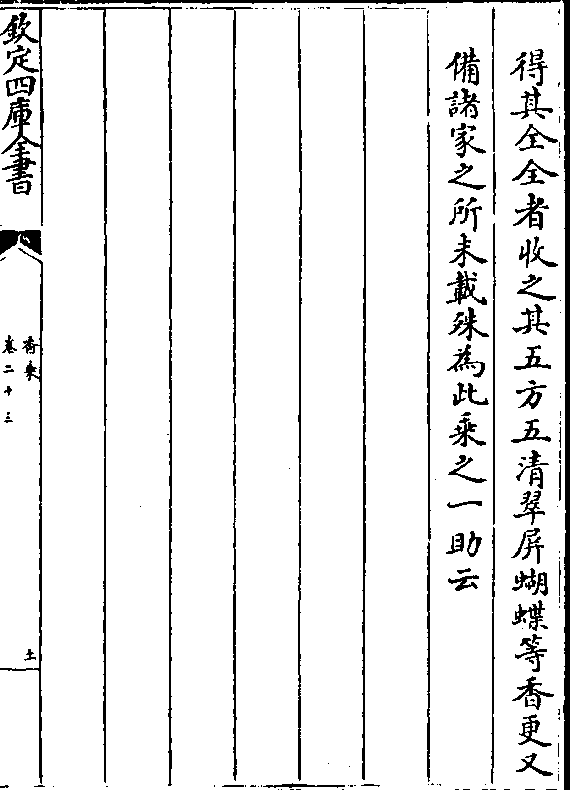 得其仝全者收之其五方五清翠屏蝴蝶等香更又
備諸家之所未載殊為此乘之一助云
欽定四庫全書
香乘
卷二十三
土